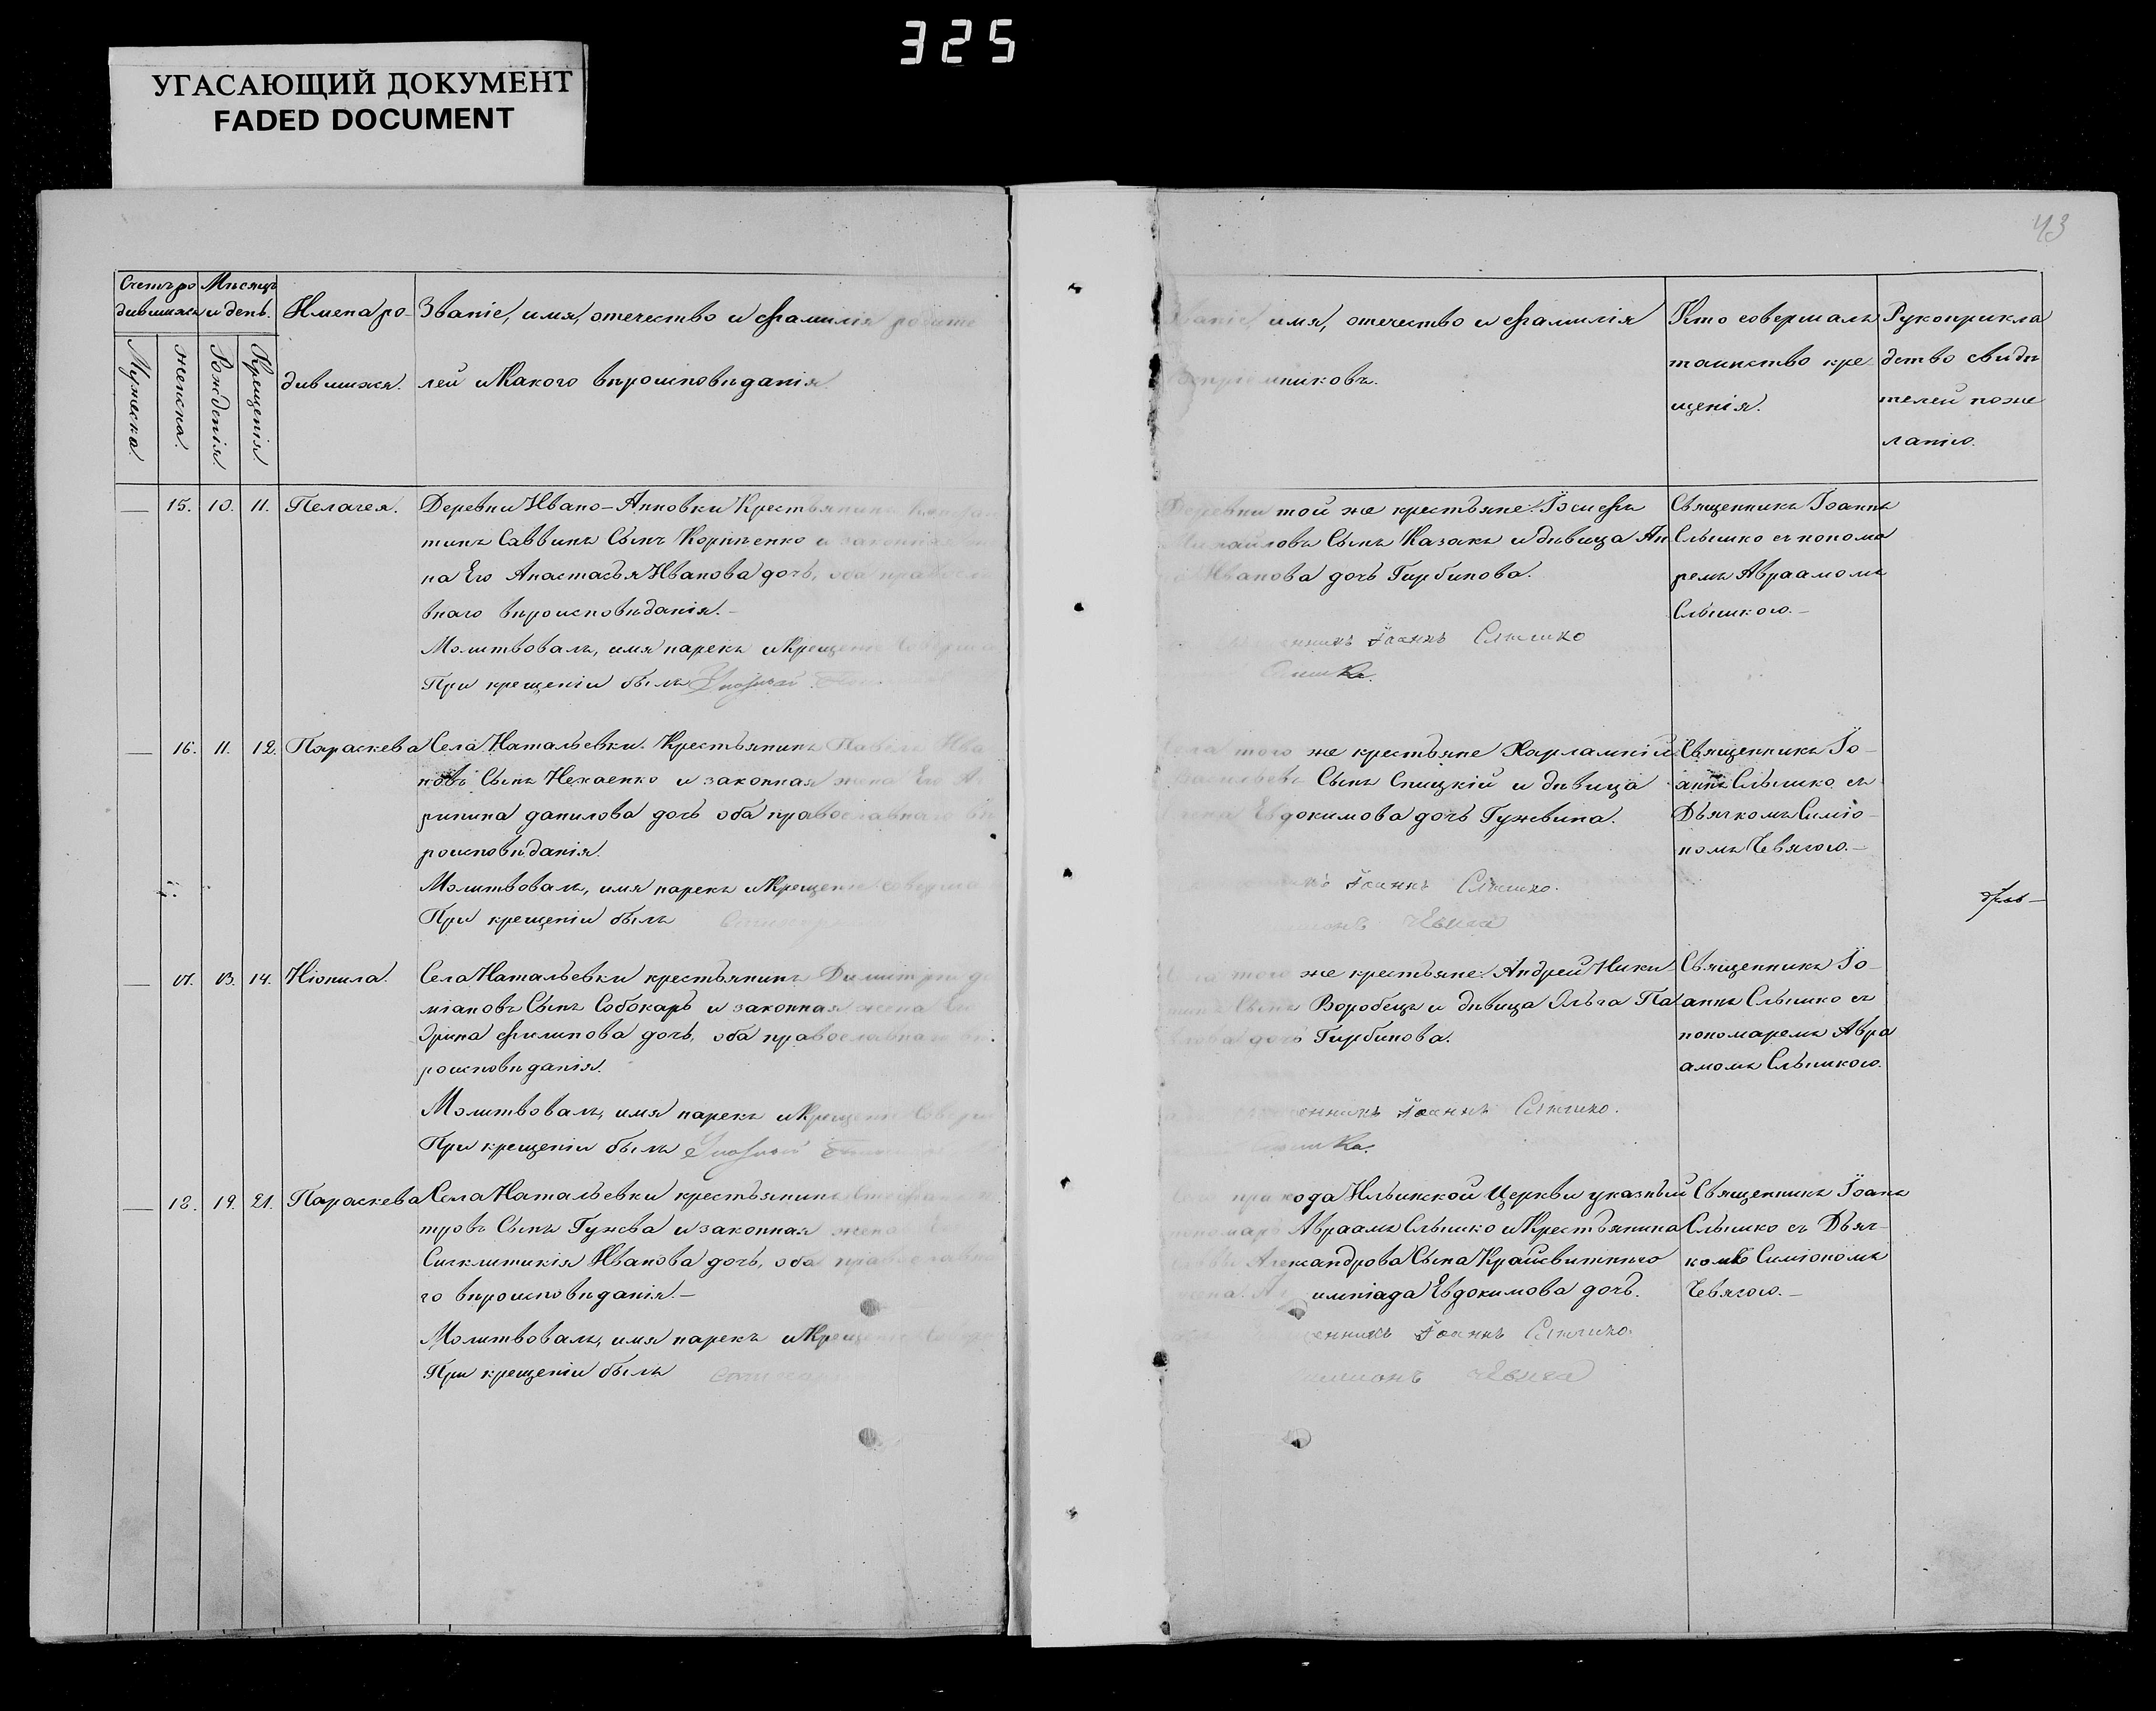 325
УГАСАЮЩИЙ ДОКУМЕНТ
FADED DOCUMENT
43
Счетъ ро
дившихся
Мѣсяцъ
и день.
Мужеска.
Женска.
Рожденія.
Крещенія.
Имена ро-
дившихся.
Званіе, имя, отечество и фамилія родите
лей и Какого вѣроисповѣданія.
Званіе, имя, отечество и фамилія
Воспріемниковъ.
Кто совершалъ
таинство кре-
щенія.
Рукоприкла
дство свидѣ
телей поже
ланію.
— 15. 10. 11. Пелагея.
Деревни Ивано-Анновки Крестьянинъ Констан
тинъ Саввинъ Сынъ Корніенко и законная
на Его Анастасья Иванова дочь, оба правосла
внаго вѣроисповѣданія.-
Молитвовалъ, имя нарекъ и Крещеніе Соверша
При крещеніи былъ
Деревни той же крестьяне: Іосифъ
Михайловъ Сынъ Казакъ и дѣвица Ан
Иванова дочь Гирбинова.
Іоаннъ Слышко
Священникъ Іоаннъ
Слышко съ понома
ремъ Авраамомъ
Слышкою.-
— 16. 11. 12. Параскева
Села Натальевки. Крестьянинъ Павелъ Ива
новъ Сынъ Нехаенко и законная жена Его А
ринина данилова дочь оба православнаго вѣ
роисповѣданія.
Молитвовалъ, имя нарекъ и Крещеніе соверша
При крещеніи былъ
Села того же крестьяне Харлампій
Васильевъ Сынъ Спицкій и дѣвица
Евдокимова дочь Гужвина.
Іоаннъ Слышко.
Чевяга
Священникъ Іо-
аннъ Слышко съ
Дьячкомъ Симіо-
номъ Чевягою.-
— 17. 13. 14.Ніонила.
Села Натальевки крестьянинъ Димитрій до
міановъ Сынъ Собокарь и законная жена Его
Ірина филипова дочь, оба православнаго вѣ
роисповѣданія.
Молитвовалъ, имя нарекъ и Крещеніе Совер
При крещеніи былъ
Села того же крестьяне: Андрей Ники-
тинъ Сынъ Воробецъ и дѣвица Ольга Па
влова дочь Гирбинова.
Іоаннъ Слышко.
Священникъ Іо-
аннъ Слышко съ
пономаремъ Авра
амомъ Слышкою.
— 18. 19. 21. Параскева
Села Натальевки крестьянинъ Стефанъ
тровъ Сынъ Гужва и законная жена
Сигклитикія Иванова дочь, оба православна
го вѣроисповѣданія.-
Молитвовалъ, имя нарекъ и Крещеніе
При крещеніи былъ
прихода Ильинской Церкви указный
пономарь Авраамъ Слышко и Крестьянина
Саввы Александрова Сына Крайсвитнего
жена. импіада Евдокимова дочь.
Іоаннъ Слышко.
Чевяга
Священникъ Іоанъ
Слышко съ Дьяч-
комъ Симіономъ
Чевягою.-